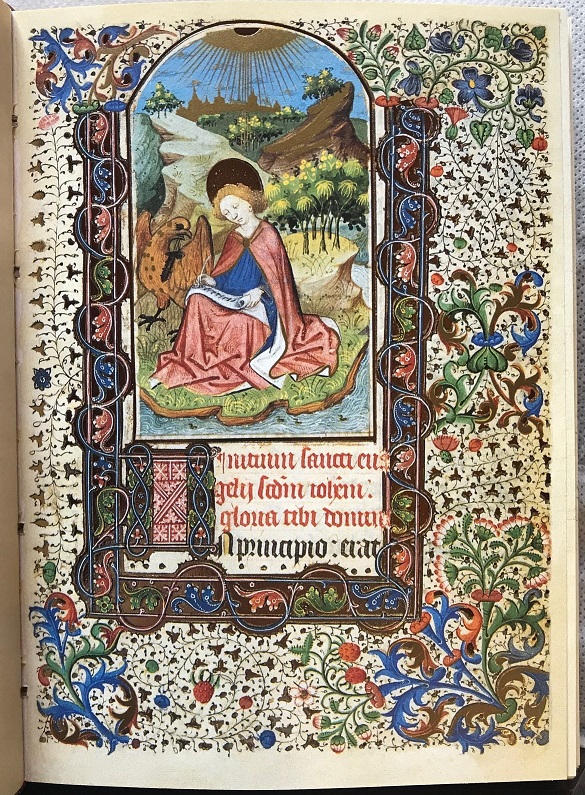 Initium sancti eua
gelij scdm iohem:
gloria tibi domine
In principio: erat